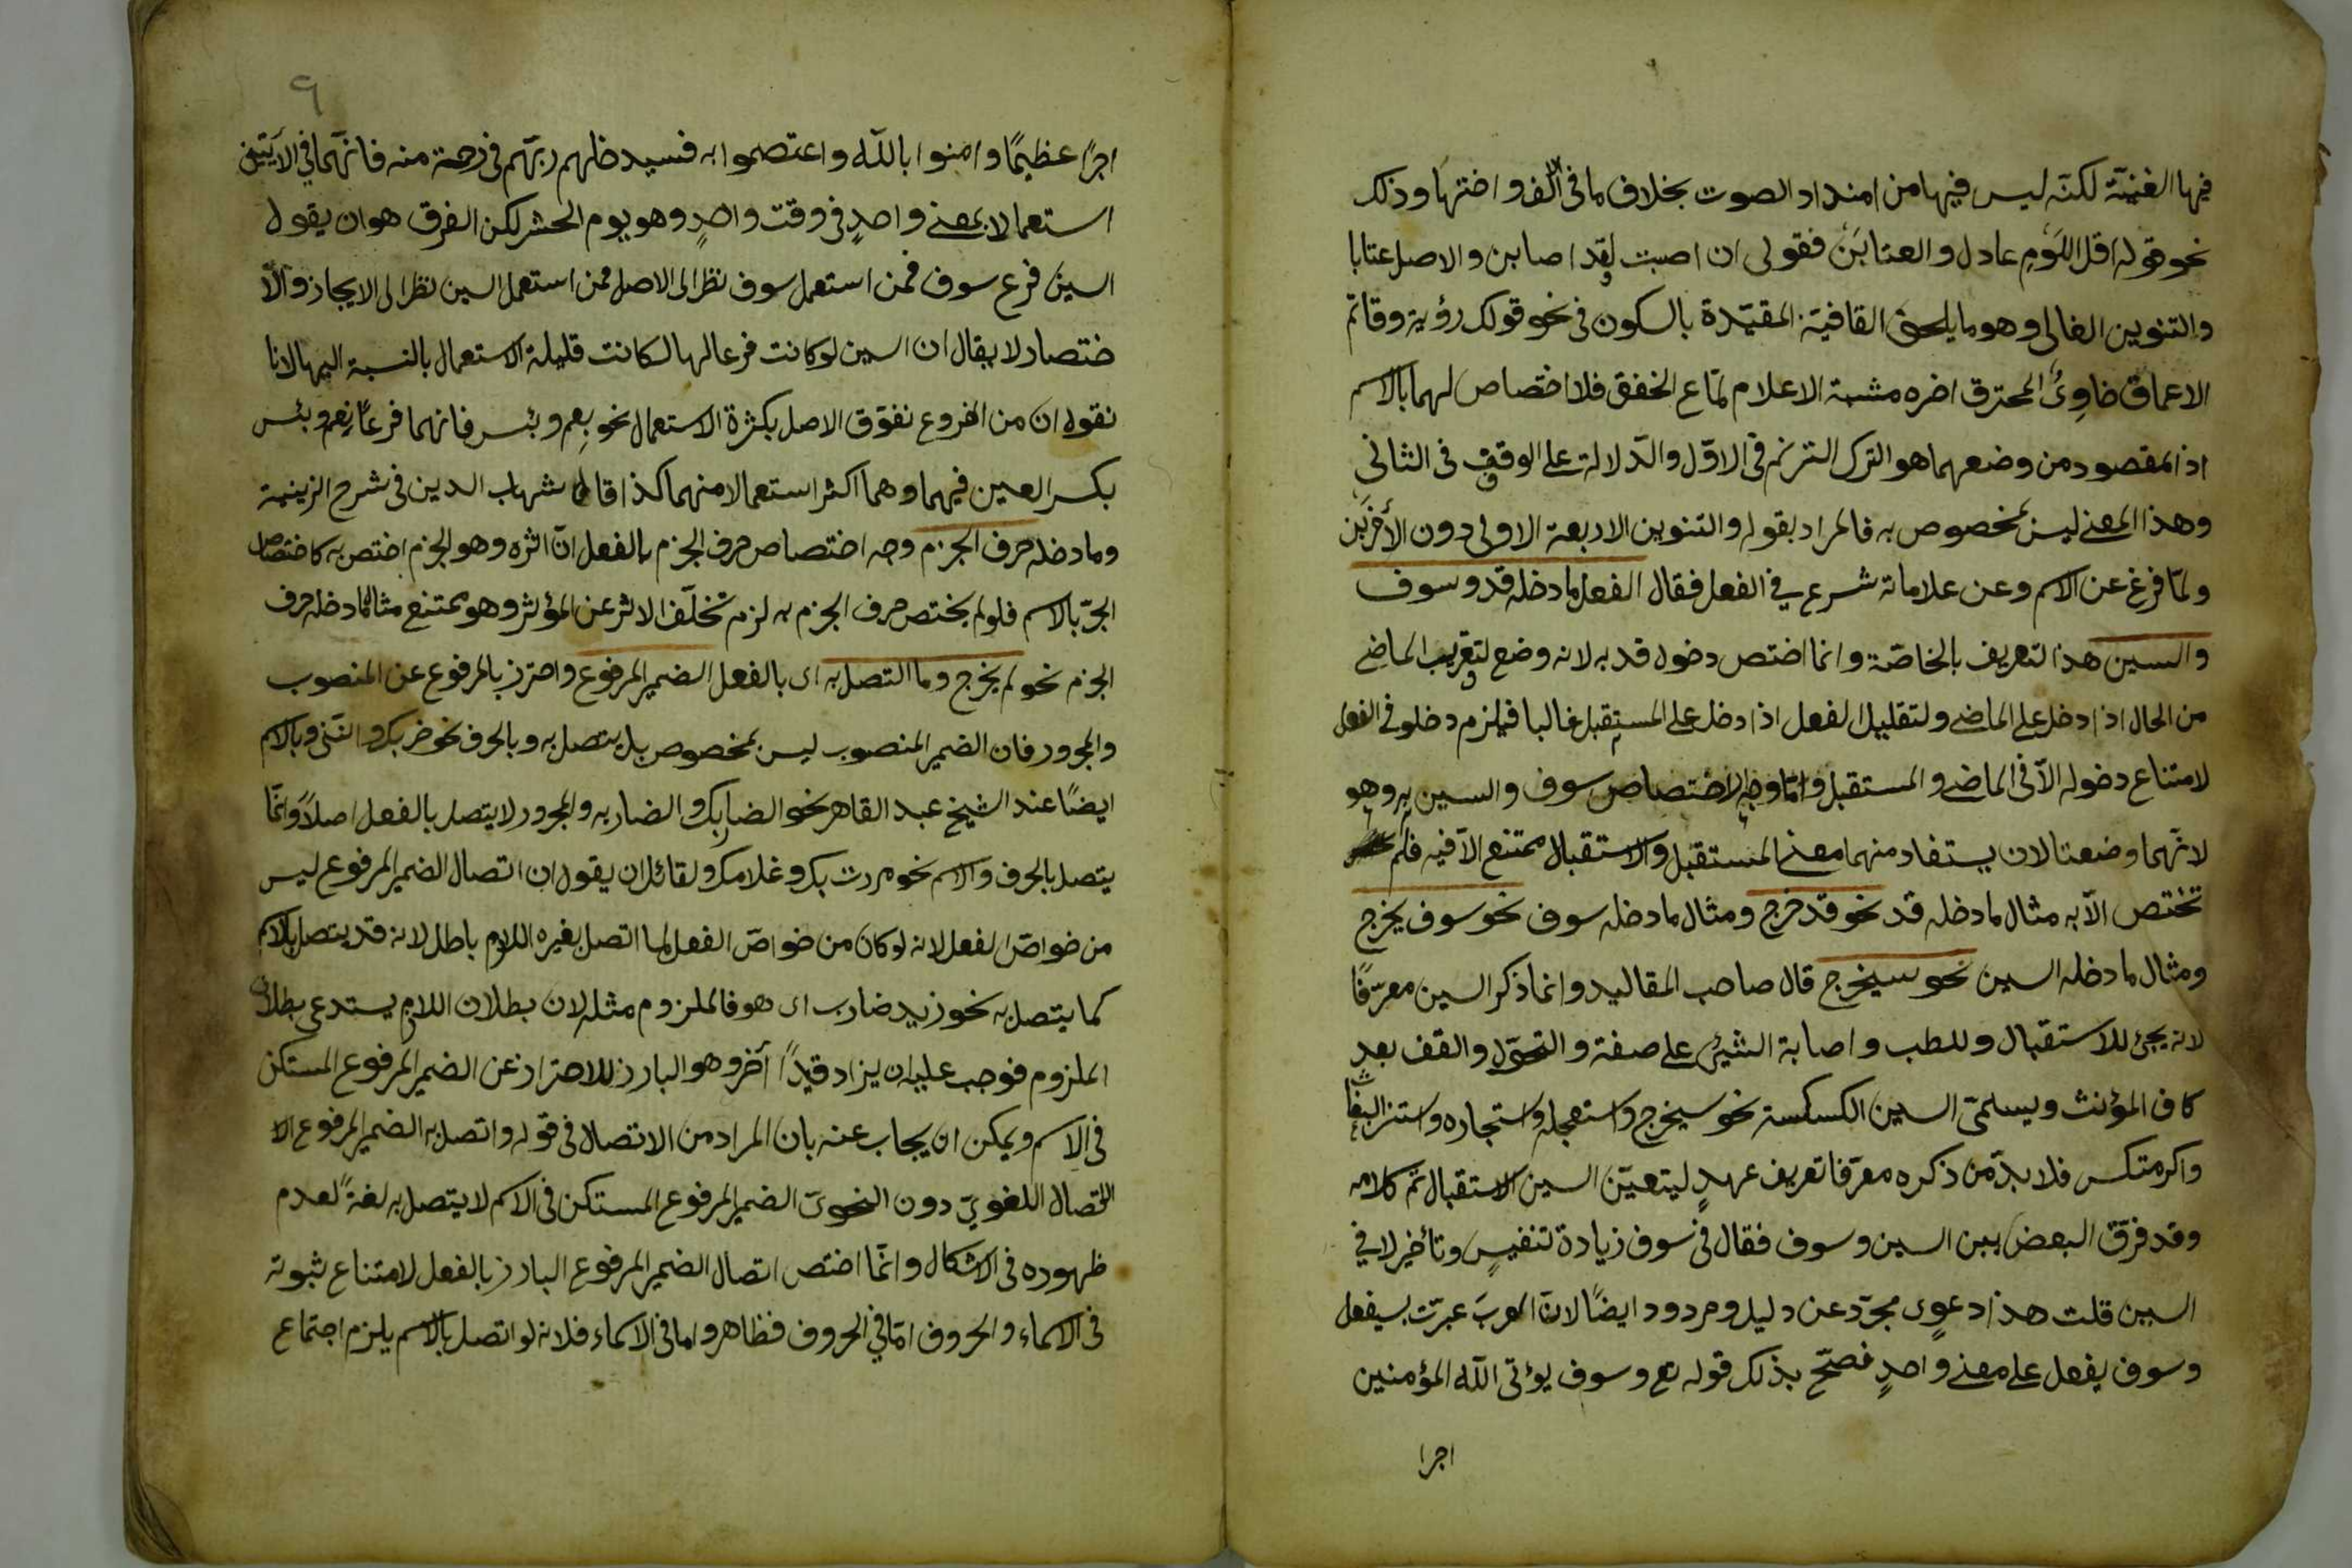 فيها الغنيّة لكنّه ليس فيها من امتداد الصوت بخلاف ما فى الالف واختها وذلك
نحو قوله اقل اللوم عاذل والعتابن فقولى ان اصبت لقد اصابن والاصل عتابا
والتنوين الغالى وهو ما يلحق القافية المقيّدة بالسكون فى نحو قولك رؤية وقاتم
الاعماق خاوى المحترق اخره مشتبه الاعلام لمّاع الخفق فلا اختصاص لهما بالاسم
اذ المقصود من وضعهما هو الترك الترنم فى الاوّل والدّلالة على الوقف فى الثانى
وهذا المعنى ليس بمخصوص به فالمراد بقوله والتنوين الاربعة الاولى دون الأخرَين
ولمّا فرغ عن الاسم وعن علاماته شرع فى الفعل فقال الفعل ما دخله قد وسوف
والسين هذا لتعريف بالخاصّة وانما اختص دخول قد به لانه وضع لتقريب الماضى
من الحال اذا دخل على الماضى ولتقليل الفعل اذا دخل على المستقبل غالبا فيلزم دخلو فى الفعل
لامتناع دخوله الاّ فى الماضى والمستقبل وامّا وجه الاختصاص سوف والسين به وهو
لانّهما وضعتا لان يستفاد منهما معنى المستقبل والاستقبال ممتنع الاّ فيه فلم
تختص الاّ به مثال ما دخله قد نحو قد خرج ومثال ما دخله سوف نحو سوف يخرج
ومثال ما دخله السين نحو سيخرج قال صاحب المقاليد وانما ذكر السين معرّفًا
لانه يجئ للاستقبال وللطب واصابة الشيئ على صفة والتحوّل والقف بعد
كاف المؤنث ويسلمى السين الكسكسة نحو سيخرج واستعجله واستجاره واستنز البغاث
واكرمتكس فلا بدّ من ذكره معرّفا تعريف عهدٍ ليتعيّن السين الاستقبال تم كلامه
وقد فرّق البعض بين السين وسوف فقال فى سوف زيادة تنفيسٍ وتأخير لا فى
السين قلت هذا دعوى مجرّد عن دليل ومردود ايضًا لانّ العربَ عبرّت بسيفعل
وسوف يفعل على معنى واحدٍ فصحّ بذلك قوله تع وسوف يؤتى اللّه المؤمنين
اجرا
٩
اجرًا عظيمًا وامنوا باللّه واعتصموا به فسيدخلهم ربّهم فى رحمة منه فانّهما فى الآيتين
استعمالا بمعنى واحدٍ فى وقت واحدٍ وهو يوم الحشر لكن الفرق هو ان يقول
السين فرع سوف فمن استعمل سوف نظر الى الاصل فمن استعمل السين نظر الى الايجاز والاّ
ختصار لا يقال ان السين لو كانت فرعا لها لكانت قليلة الاستعمال بالنسبة اليها لانا
نقول ان من الفروع تفوّق الاصل بكثرة الاستعمال نحو نِعم وبئس فانهما فرعا نَعِم وبئس
بكسر العين فيهما وهما اكثر استعمالا منهما كذا قال شهاب الدين فى شرح الزينية
وما دخله حرف الجزم وجه اختصاص حرف الجزم بالفعل انّ اثره وهو الجزم اختص به كاختصاص
الجرّ بالاسم فلو لم يختص حرف الجزم به لزم تخلّف الاثر عن المؤثر وهو ممتنع مثال ما دخله حرف
الجزم نحو لم يخرج وما التصل به اى بالفعل الضمير المرفوع واحترز بالمرفوع عن المنصوب
والمجرور فان الضمير المنصوب ليس بمخصوص بل يتصل به وبالحرف نحو ضربك واننى وبالاسم
ايضًا عند الشيخ عبد القاهر نحو الضاربك والضاربه والمجرور لا يتصل بالفعل اصلاً وانّما
يتصل بالحرف والاسم نحو مررت بك وغلامك ولقائل ان يقول ان اتصال الضمير المرفوع ليس
من خواصّ الفعل لانه لو كان من خواصّ الفعل لما اتصل بغيره اللازم باطل لانه قد يتصل بالاسم
كما يتصل به نحو زيد ضارب اى هو فالملزوم مثله لان بطلان اللازم يستدعى بطلان
الملزوم فوجب عليه ان يزاد قيدًا آخر وهو البارز للاحتراز عن الضمير المرفوع المستكن
فى الاسم ويمكن ان يجاب عنه بان المراد من الاتصال فى قوله واتصل به الضمير المرفوع الا
لاتصال اللغوىّ دون النحوىّ الضمير المرفوع المستكن فى الاسم لا يتصل به لغةً لعدم
ظهوره فى الاشكال وانّما اختص اتصال الضمير المرفوع البارز بالفعل لامتناع ثبوته
فى الاسماء والحروف امّا فى الحروف فظاهر واما فى الاسماء فلانه لو اتصل بالاسم يلزم اجتماع